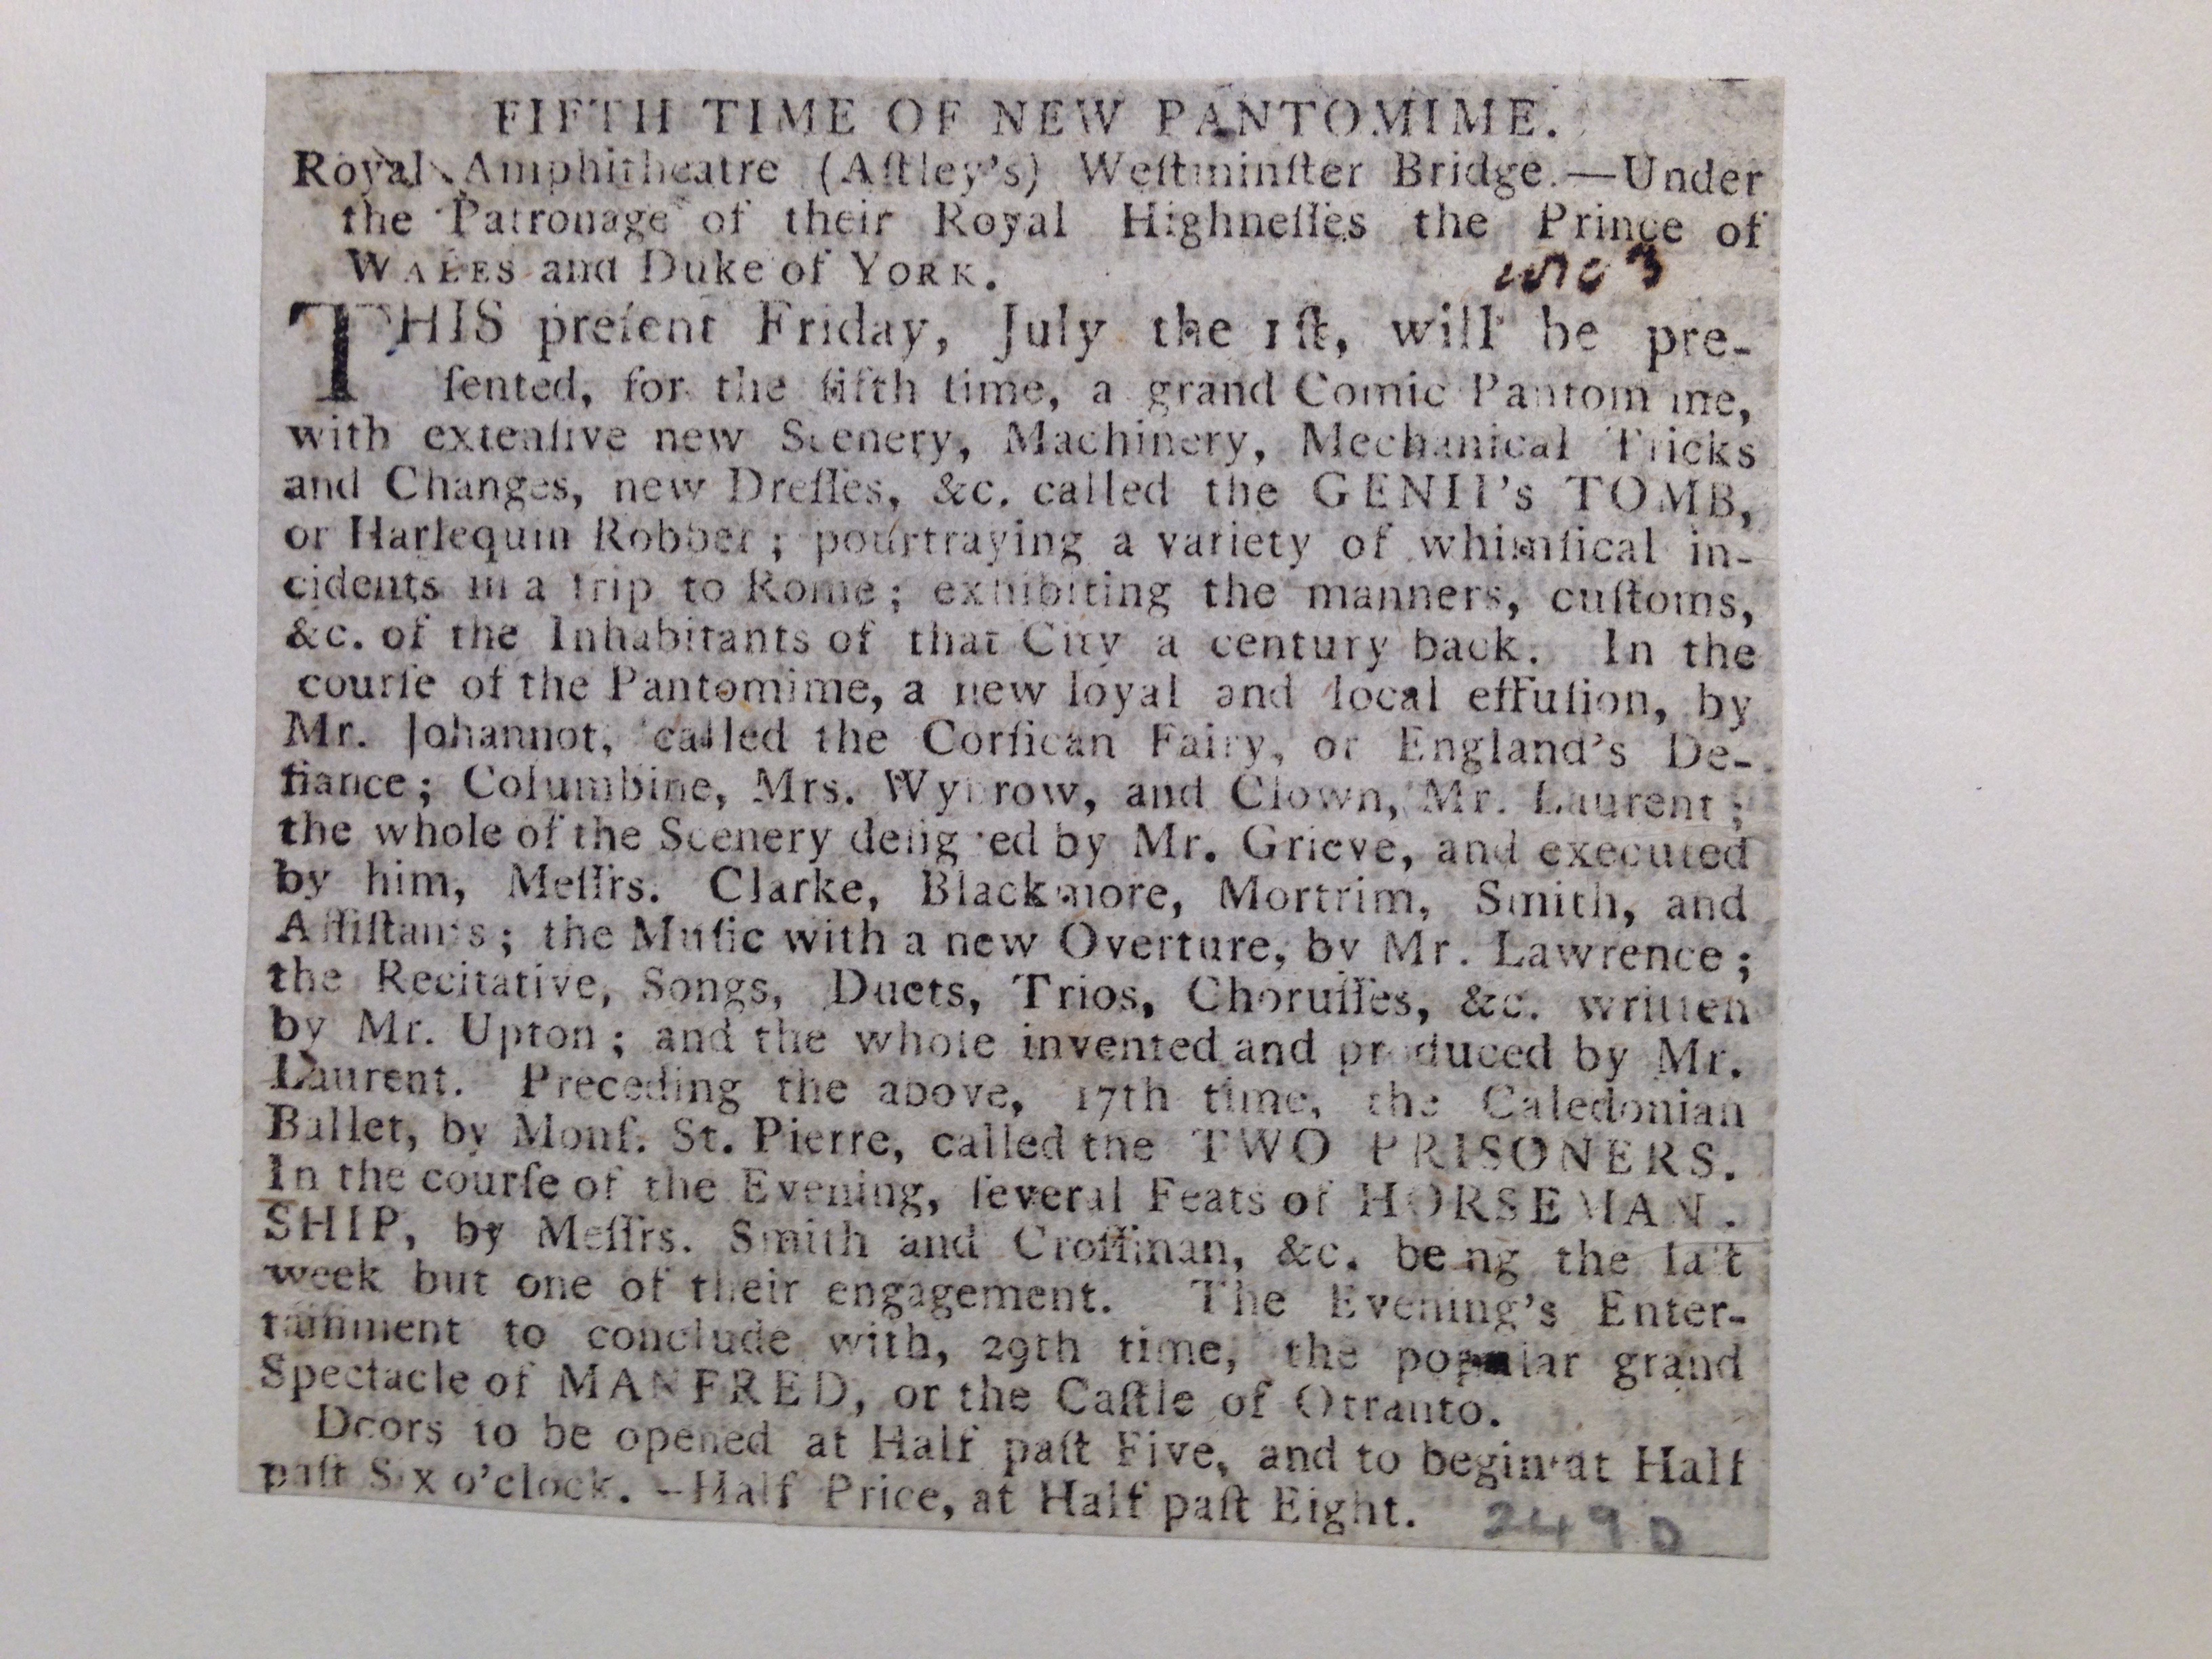 FIFTH TIME OF NEW PANTOMIME.
Royal Amphitheatre (Aſtley's) Weſtminſter Bridge.—Under
the Patronage of their Royal Highneſſes the Prince of
WALES and Duke of YORK.
THIS preſent Friday, July the 1ſt, will be pre-
ſented, for the fifth time, a grand Comic Pantomime,
with extenſive new Scenery, Machinery, Mechanical Tricks
and Changes, new Dreſſes, &c. called the GENII's TOMB,
or Harlequin Robber; pourtraying a variety of whimſical in-
cidents in a trip to Rome; exhibiting the manners, cuſtoms,
&c. of the Inhabitants of that City a century back. In the
courſe of the Pantomime, a new loyal and local effuſion, by
Mr. Johannot, called the Corſican Fairy, or England's De-
fiance; Columbine, Mrs. Wybrow, and Clown, Mr. Laurent;
the whole of the Scenery deſigned by Mr. Grieve, and executed
by him, Meſſrs. Clarke, Blackmore, Mortrim, Smith, and
Aſſiſtants; the Muſic with a new Overture, by Mr. Lawrence;
the Recitative, Songs, Duets, Trios, Choruſſes, &c. written
by Mr. Upton; and the whole invented and produced by Mr.
Laurent. Preceding the above, 17th time, the Caledonian
Ballet, by Monſ. St. Pierre, called the TWO PRISONERS.
In the courſe of the Evening, ſeveral Feats of HORSEMAN-
SHIP, by Meſſrs. Smith and Croſſman, &c. being the laſt
week but one of their engagement. The Evening's Enter-
tainment to conclude with, 29th time, the popular grand
Spectacle of MANFRED, or the Caſtle of Otranto.
Doors to be opened at Half paſt Five, and to begin at Half
paſt Six o'clock.—Half Price, at Half paſt Eight.